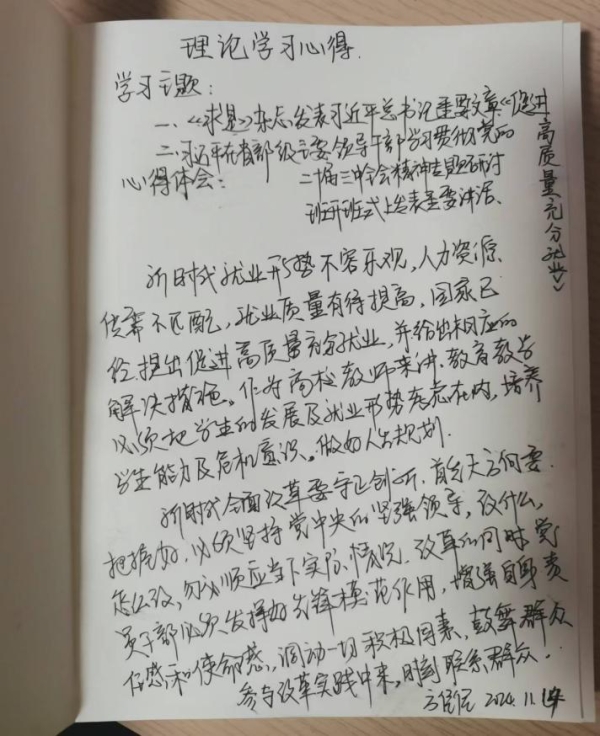 理论学习心得.
学习主题:
一、《求是》杂志发表习近平总书记重要文章《促进高质量充分就业》
二、习近平在省部级主要领导干部学习贯彻党的
二十届三中全会精神专题研讨
班开班式上发表重要讲话、
心得体会:
新时代就业形势不容乐观,人力资源
供需不匹配,就业质量有待提高,国家已
经提出促进高质量充分就业,并给出相应的
解决措施。作为高校教师来讲,教育教学
必须把学生的发展及就业形势考虑在内,培养
学生能力及危机意识。做好人生规划.
新时代全面改革要守正创新.首先大方向要
把握好,必须坚持党中央的坚强领导,改什么,
怎么改,务必顺应当下实际情况.改革的同时党
员干部必须发挥好先锋模范作用,增强自身责
任感和使命感,调动一切积极因素,鼓舞群众
参与改革实践中来,时刻联系群众.
2024.11.